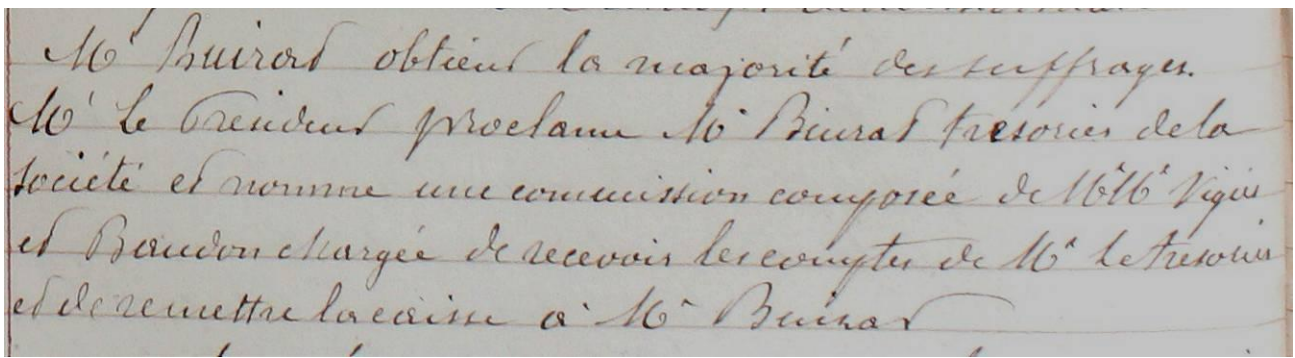 Mr Buirat obtient la majorité des suffrages.
Mr Le President proclame Mr Buirat tresorier de la
société et nomme une commission composée de Mr Mr Vigier
et Baudon chargée de recevoir les comptes de Mr le tresorier
et de remettre la caisse à Mr Buirat